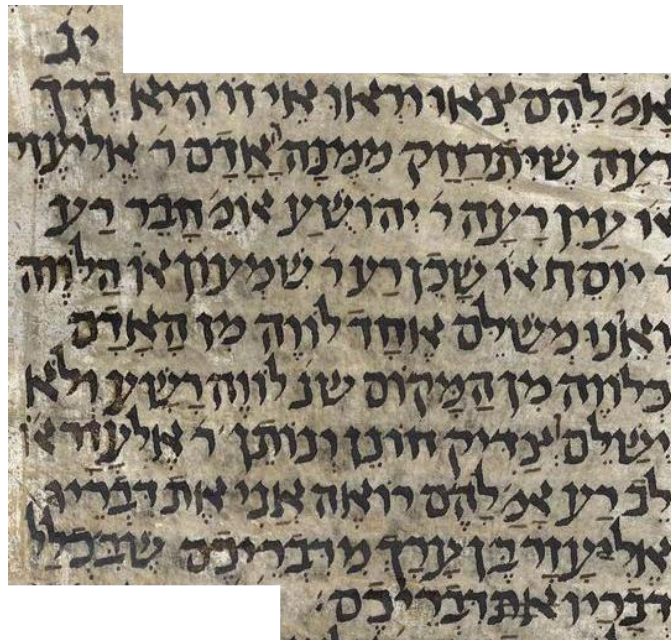 יג
אמ' להם צאו וראו אי זו היא דרך
רעה שיתרחק ממנה האדם ר' אליעזר
או' עין רעה ר' יהושע אומ' חבר רע
ר' יוסה או' שכן רע ר' שמעון או' הלווה
ואינו משלם אחד לווה מן האדם
כלווה מן המקום שנ' לווה רשע ולא
ישלם וצדיק חונן ונותן ר' אלעזר או'
לב רע אמ' להם רואה אני את דברי
אלעזר בן ערך מדבריכם שבכלל
דבריו את דבריכם